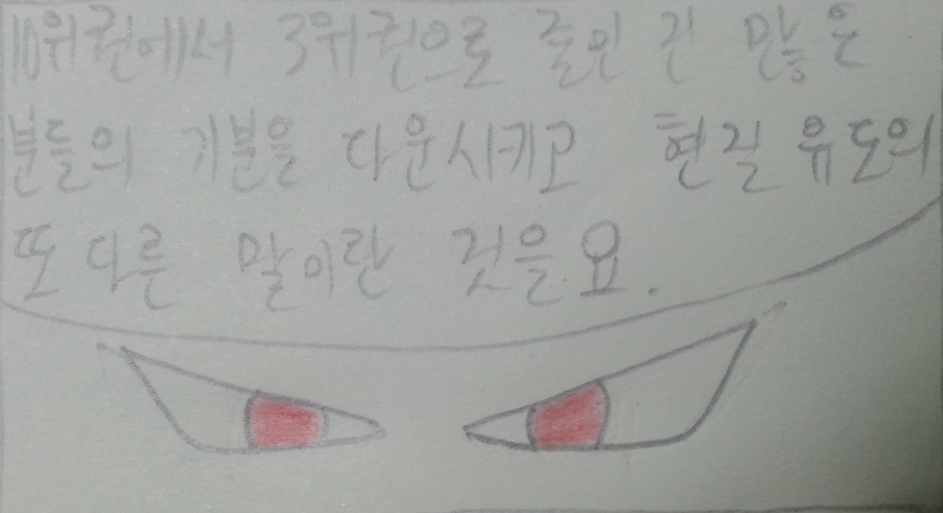 10위권에서 3위권으로 줄인 건 많은
분들의 기분을 다운시키고 현질 유도의
또 다른 말이란 것을요.